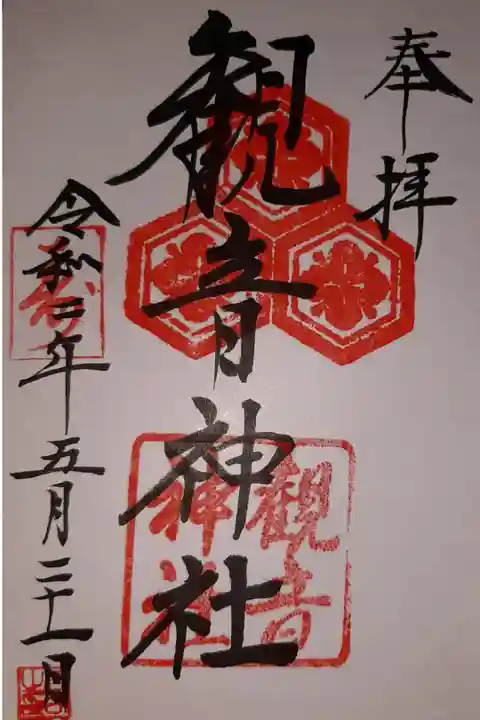 奉拝
観音神社
令和二年五月二十一日
観音
神社